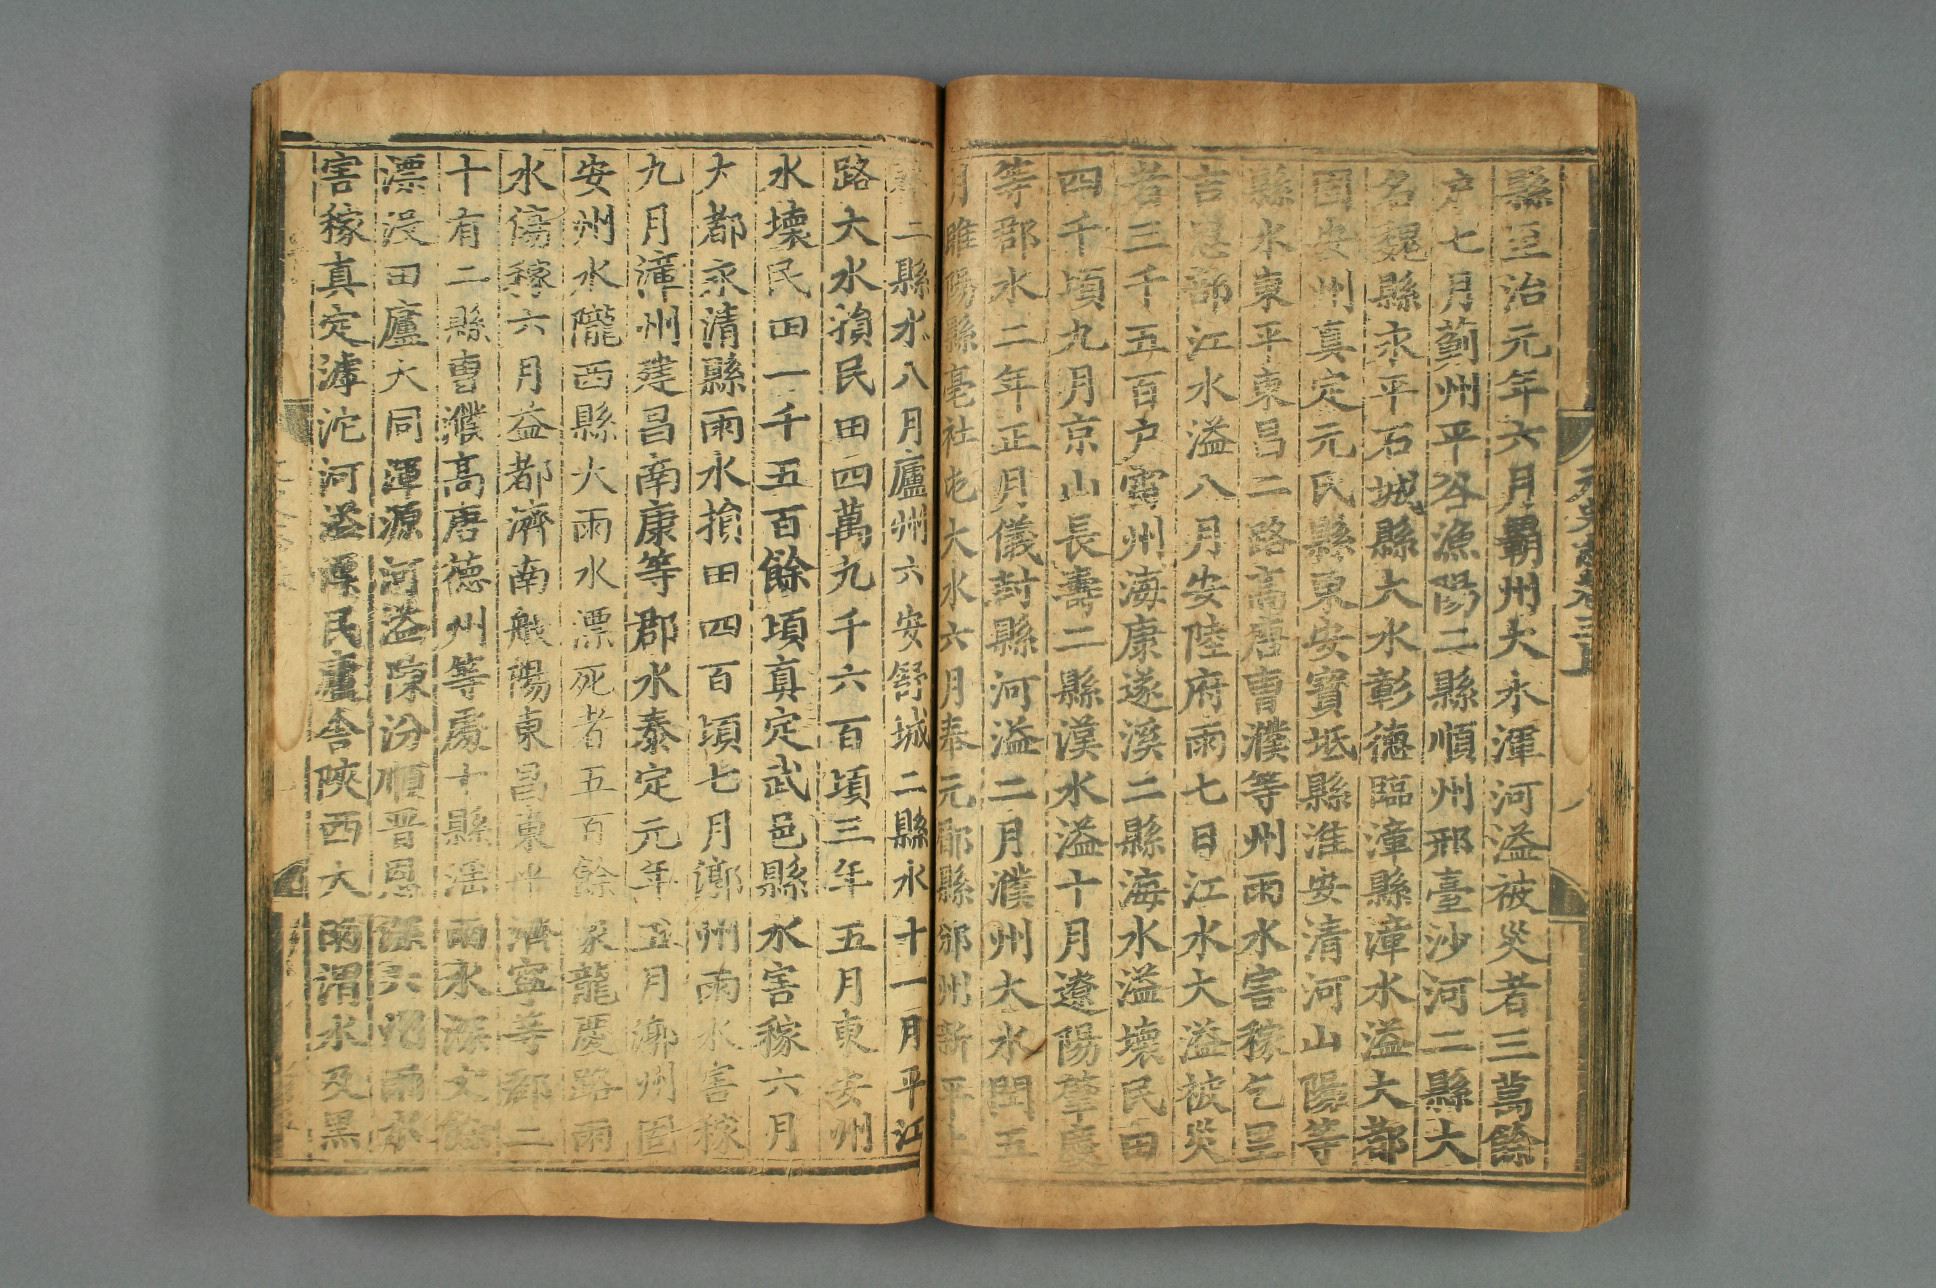 縣至治元年六月霸州大水渾河溢被災者三萬餘
戶七月薊州平谷漁陽二縣順州邢臺沙河二縣大
名魏縣永平石城縣大水彰德臨漳縣漳水溢大都
固安州真定元氏縣東安寶坻縣淮安清河山陽等
縣水東平東昌二路高唐曹濮等州雨水害稼乞里
吉思部江水溢八月安陸府雨七日江水大溢被災
者三千五百戶雷州海康遂溪二縣海水溢壞民田
四千頃九月京山長壽二縣漢水溢十月遼陽肇慶
等郡水二年正月儀封縣河溢二月濮州大水閏五
月睢陽縣亳社屯大水六月奉元郿縣邠州新平上
二縣水八月廬州六安舒城二縣水十一月平江
路大水損民田四萬九千六百頃三年五月東安州
水壞民田一千五百餘頃真定武邑縣水害稼六月
大都永清縣雨水損田四百頃七月漷州雨水害稼
九月漳州建昌南康等郡水泰定元年五月漷州固
安州水隴西縣大雨水漂死者五百餘家龍慶路雨
水傷稼六月益都濟南般陽東昌東平濟寧等郡二
十有二縣曹濮高唐德州等處十縣淫雨水深丈餘
漂沒田廬大同渾源河溢陳汾順晋恩深六州雨水
害稼真定滹沱河溢漂民廬舍陝西大雨渭水及黑
元史志卷三上